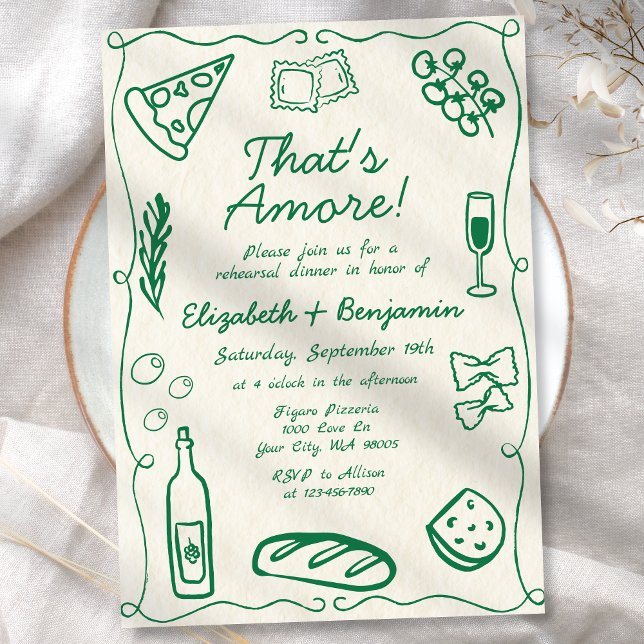 That's
Amore!
Please join us for a
rehearsal dinner in honor of
Elizabeth + Benjamin
Saturday, September 19th
at 4 oclock in the afternoon
Figaro Pizzeria
1000 Love Ln
Your City, WA 98005
RSVP to Allison
at 123-456-7890